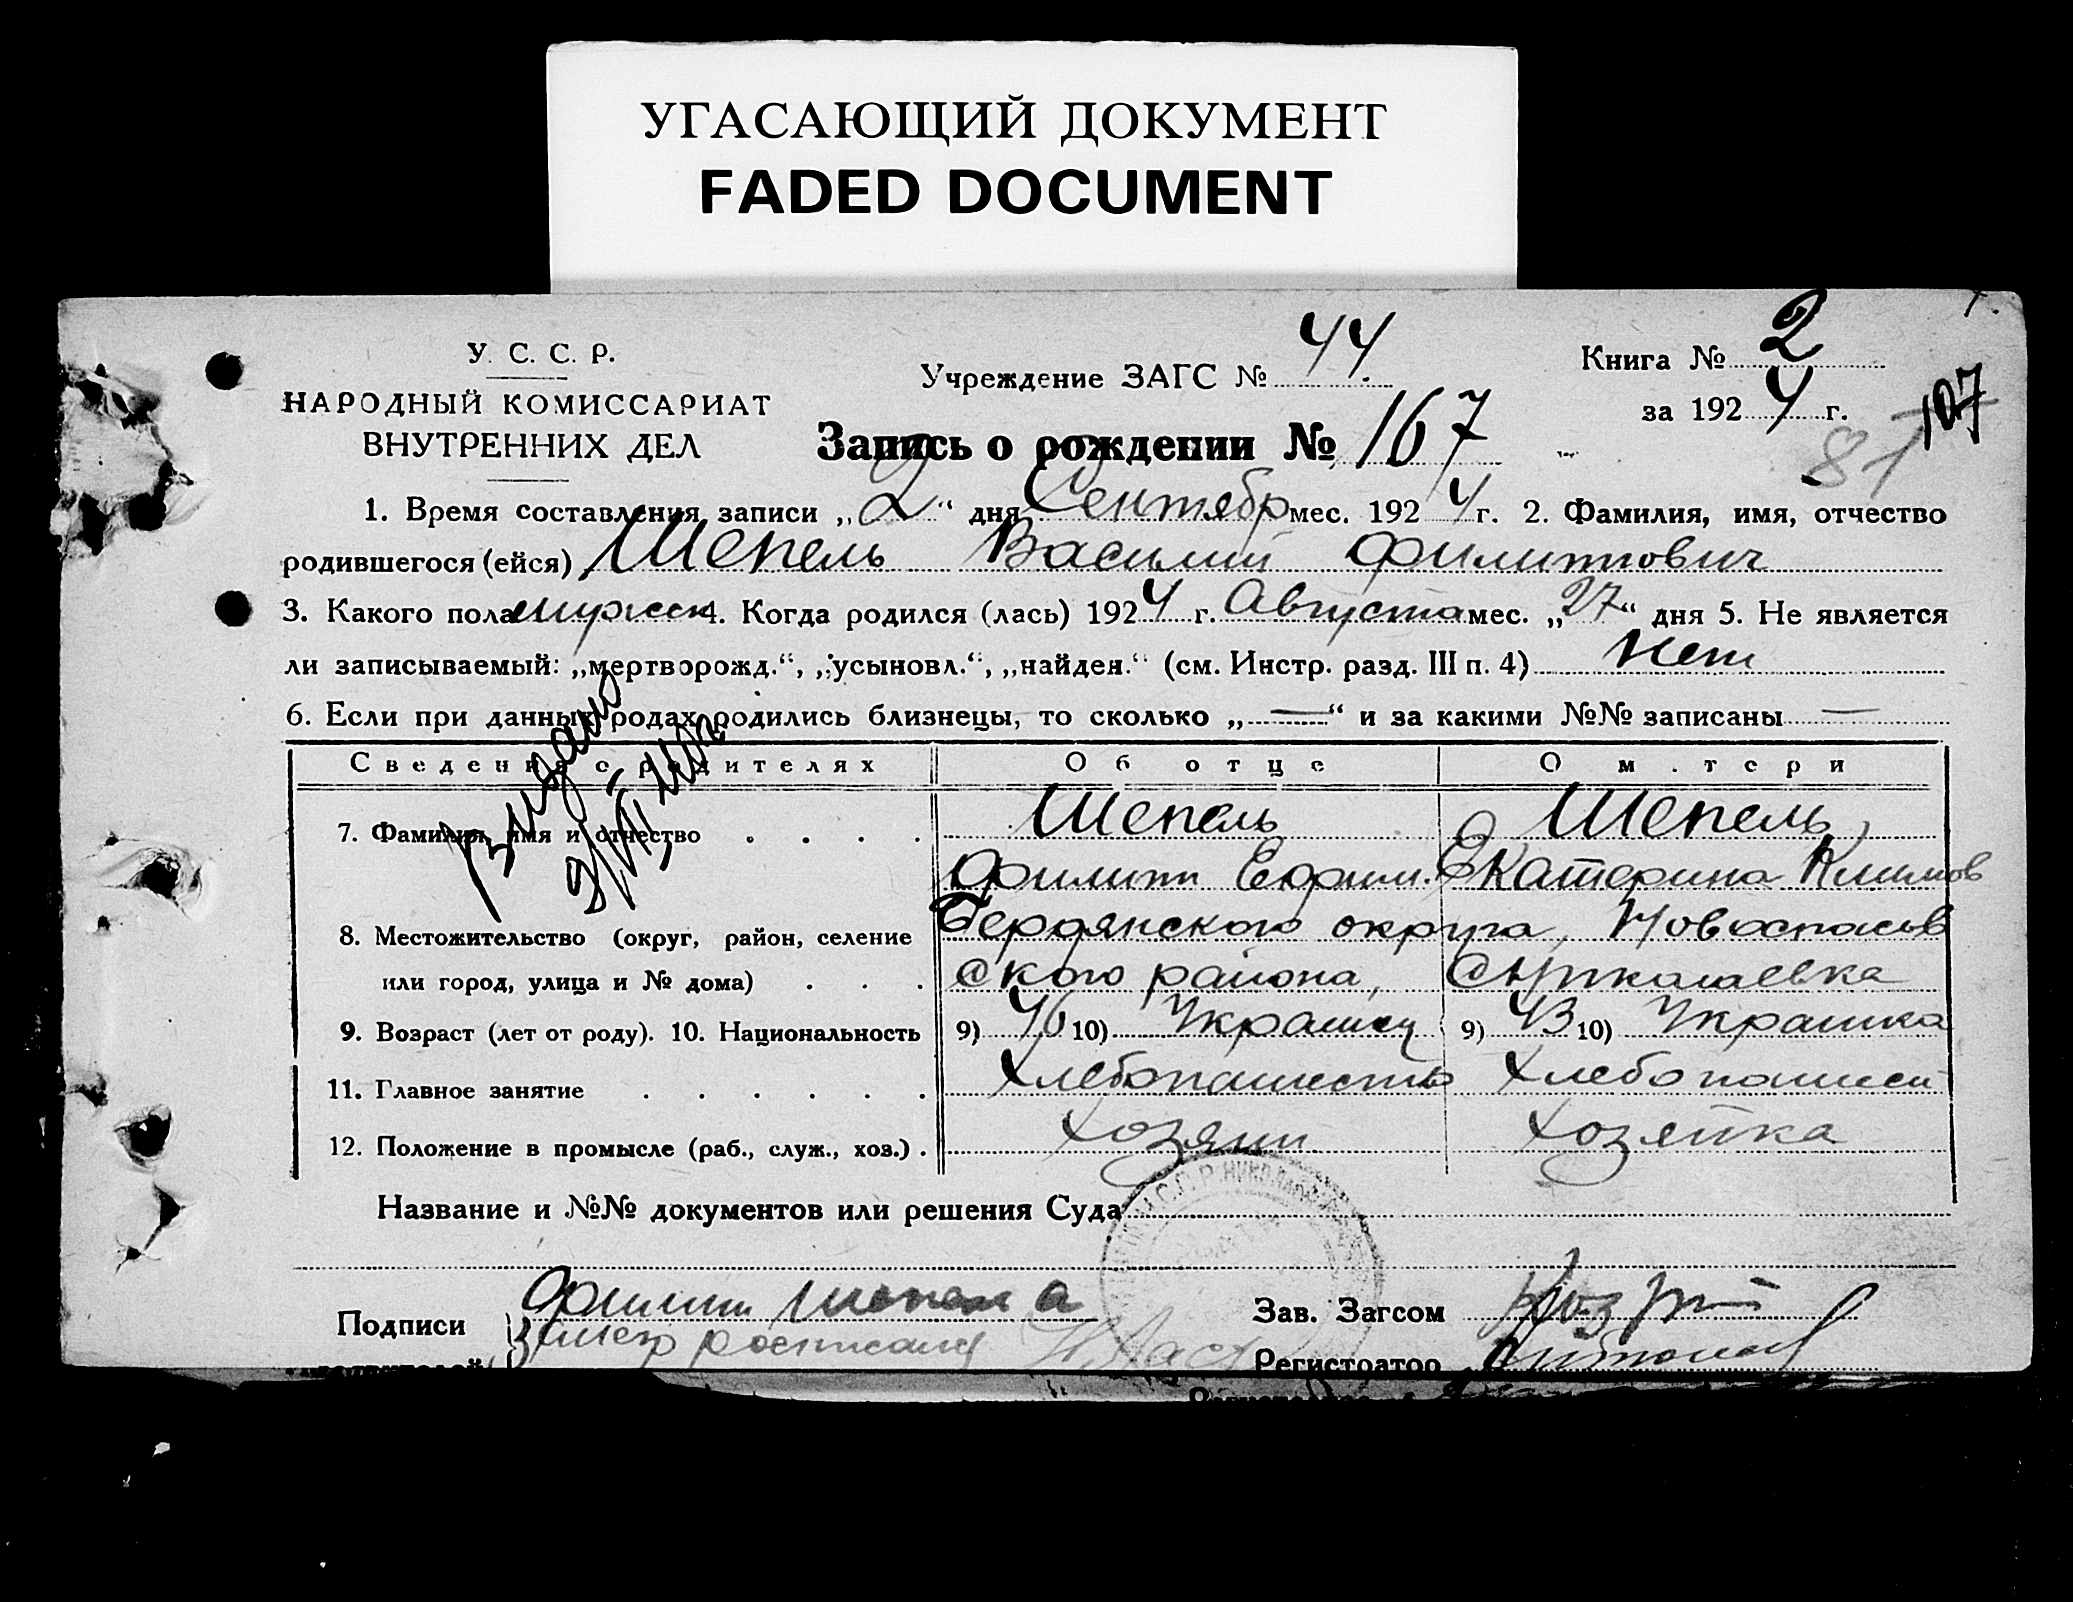 УГАСАЮЩИЙ ДОКУМЕНТ
FADED DOCUMENT
У. С. С. Р.
НАРОДНЫЙ КОМИССАРИАТ
ВНУТРЕННИХ ДЕЛ
Учреждение ЗАГС № 44
Книга № 2
за 1924 г.
107
81
Запись о рождении № 167
1. Время составления записи „2“ дня Сентябр мес. 1924 г. 2. Фамилия, имя, отчество
родившегося (ейся) Шепель Василий Филиппович
3. Какого пола мужск 4. Когда родился (лась) 1924 г. Августа мес. „27“ дня 5. Не является
ли записываемый: „мертворожд.“, „усыновл.“, „найден.“ (см. Инстр. разд. III п. 4) Нет
6. Если при данных родах родились близнецы, то сколько „—“ и за какими №№ записаны —
Сведения о родителях Об отце О матери
7. Фамилия, имя и отчество . . . . Шепель Шепель,
Филипп Ефрим. Екатерина Климов
8. Местожительство (округ, район, селение Бердянского округа, Новоспасов
или город, улица и № дома) . . . ского района,
9. Возраст (лет от роду). 10. Национальность 9) 46 10) Украинец 9) 43 10) Украинка
11. Главное занятие . . . . . . Хлебопашество Хлебопашест
12. Положение в промысле (раб., служ., хоз.) . хозяин хозяйка
Название и №№ документов или решения Суда
Подписи Филипп Шепель
Зав. Загсом
Регистратор